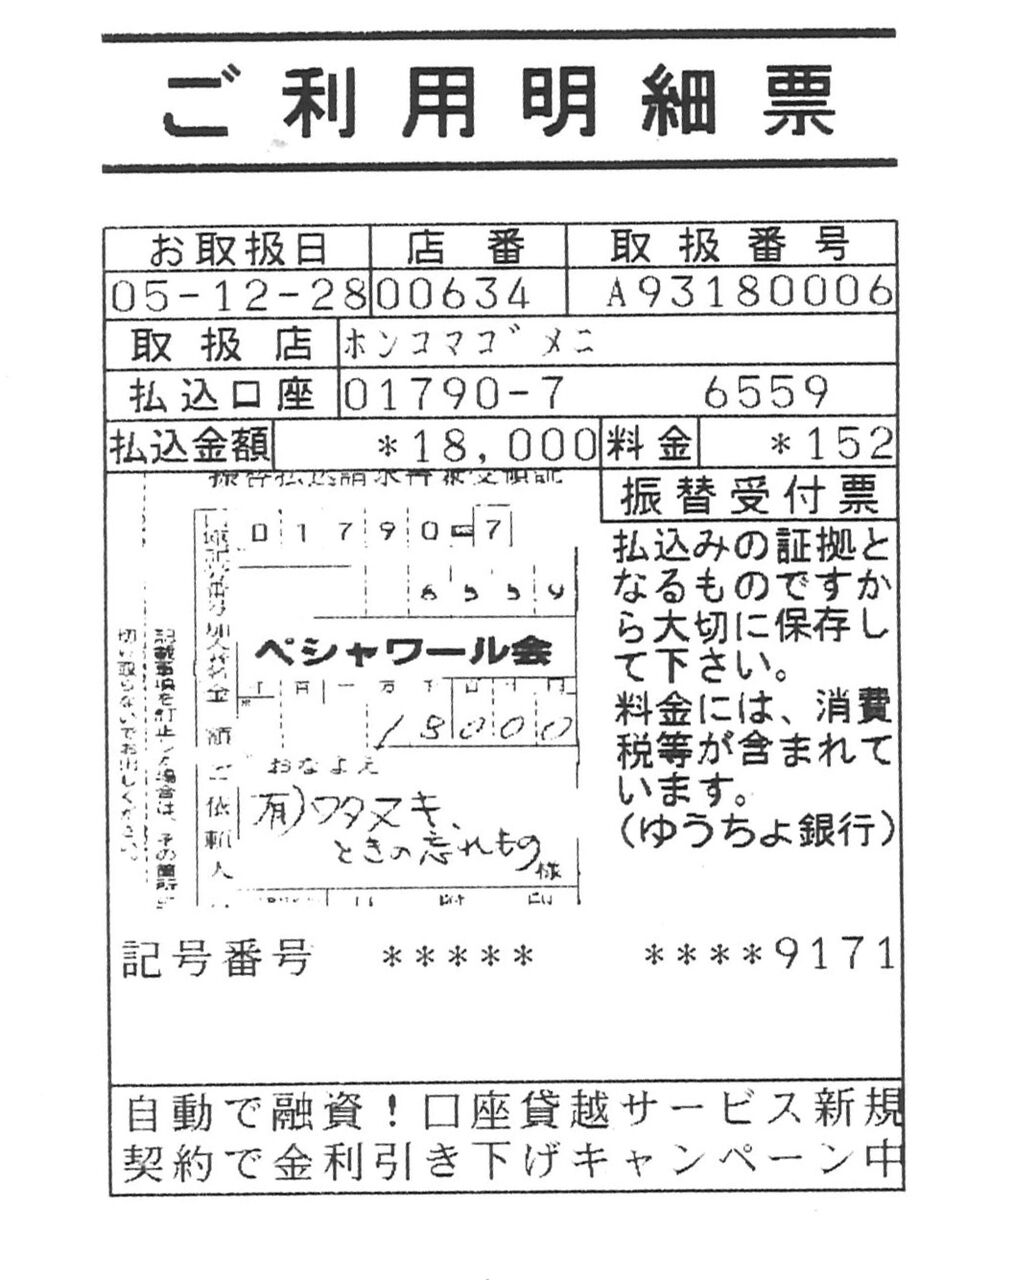 ご利用明細票
お取扱日 店番 取扱番号
05-12-28 00634 A93180006
取扱店 ホンコマゴメニ
払込口座 01790-7 6559
払込金額 *18,000 料金 *152
振替払込請求書兼受領証
口座記号番号
01790-7
6559
加入者名
ペシャワール会
金額
千百十万千百十円
18000
ご依頼人
おなまえ
(有)ワタヌキ、
ときの忘れもの
様
記載事項を訂正した場合は、その箇所に
切り取らないでお出しください。
振替受付票
払込みの証拠と
なるものですか
ら大切に保存し
て下さい。
料金には、消費
税等が含まれて
います。
(ゆうちょ銀行)
記号番号 ***** ****9171
自動で融資!口座貸越サービス新規
契約で金利引き下げキャンペーン中